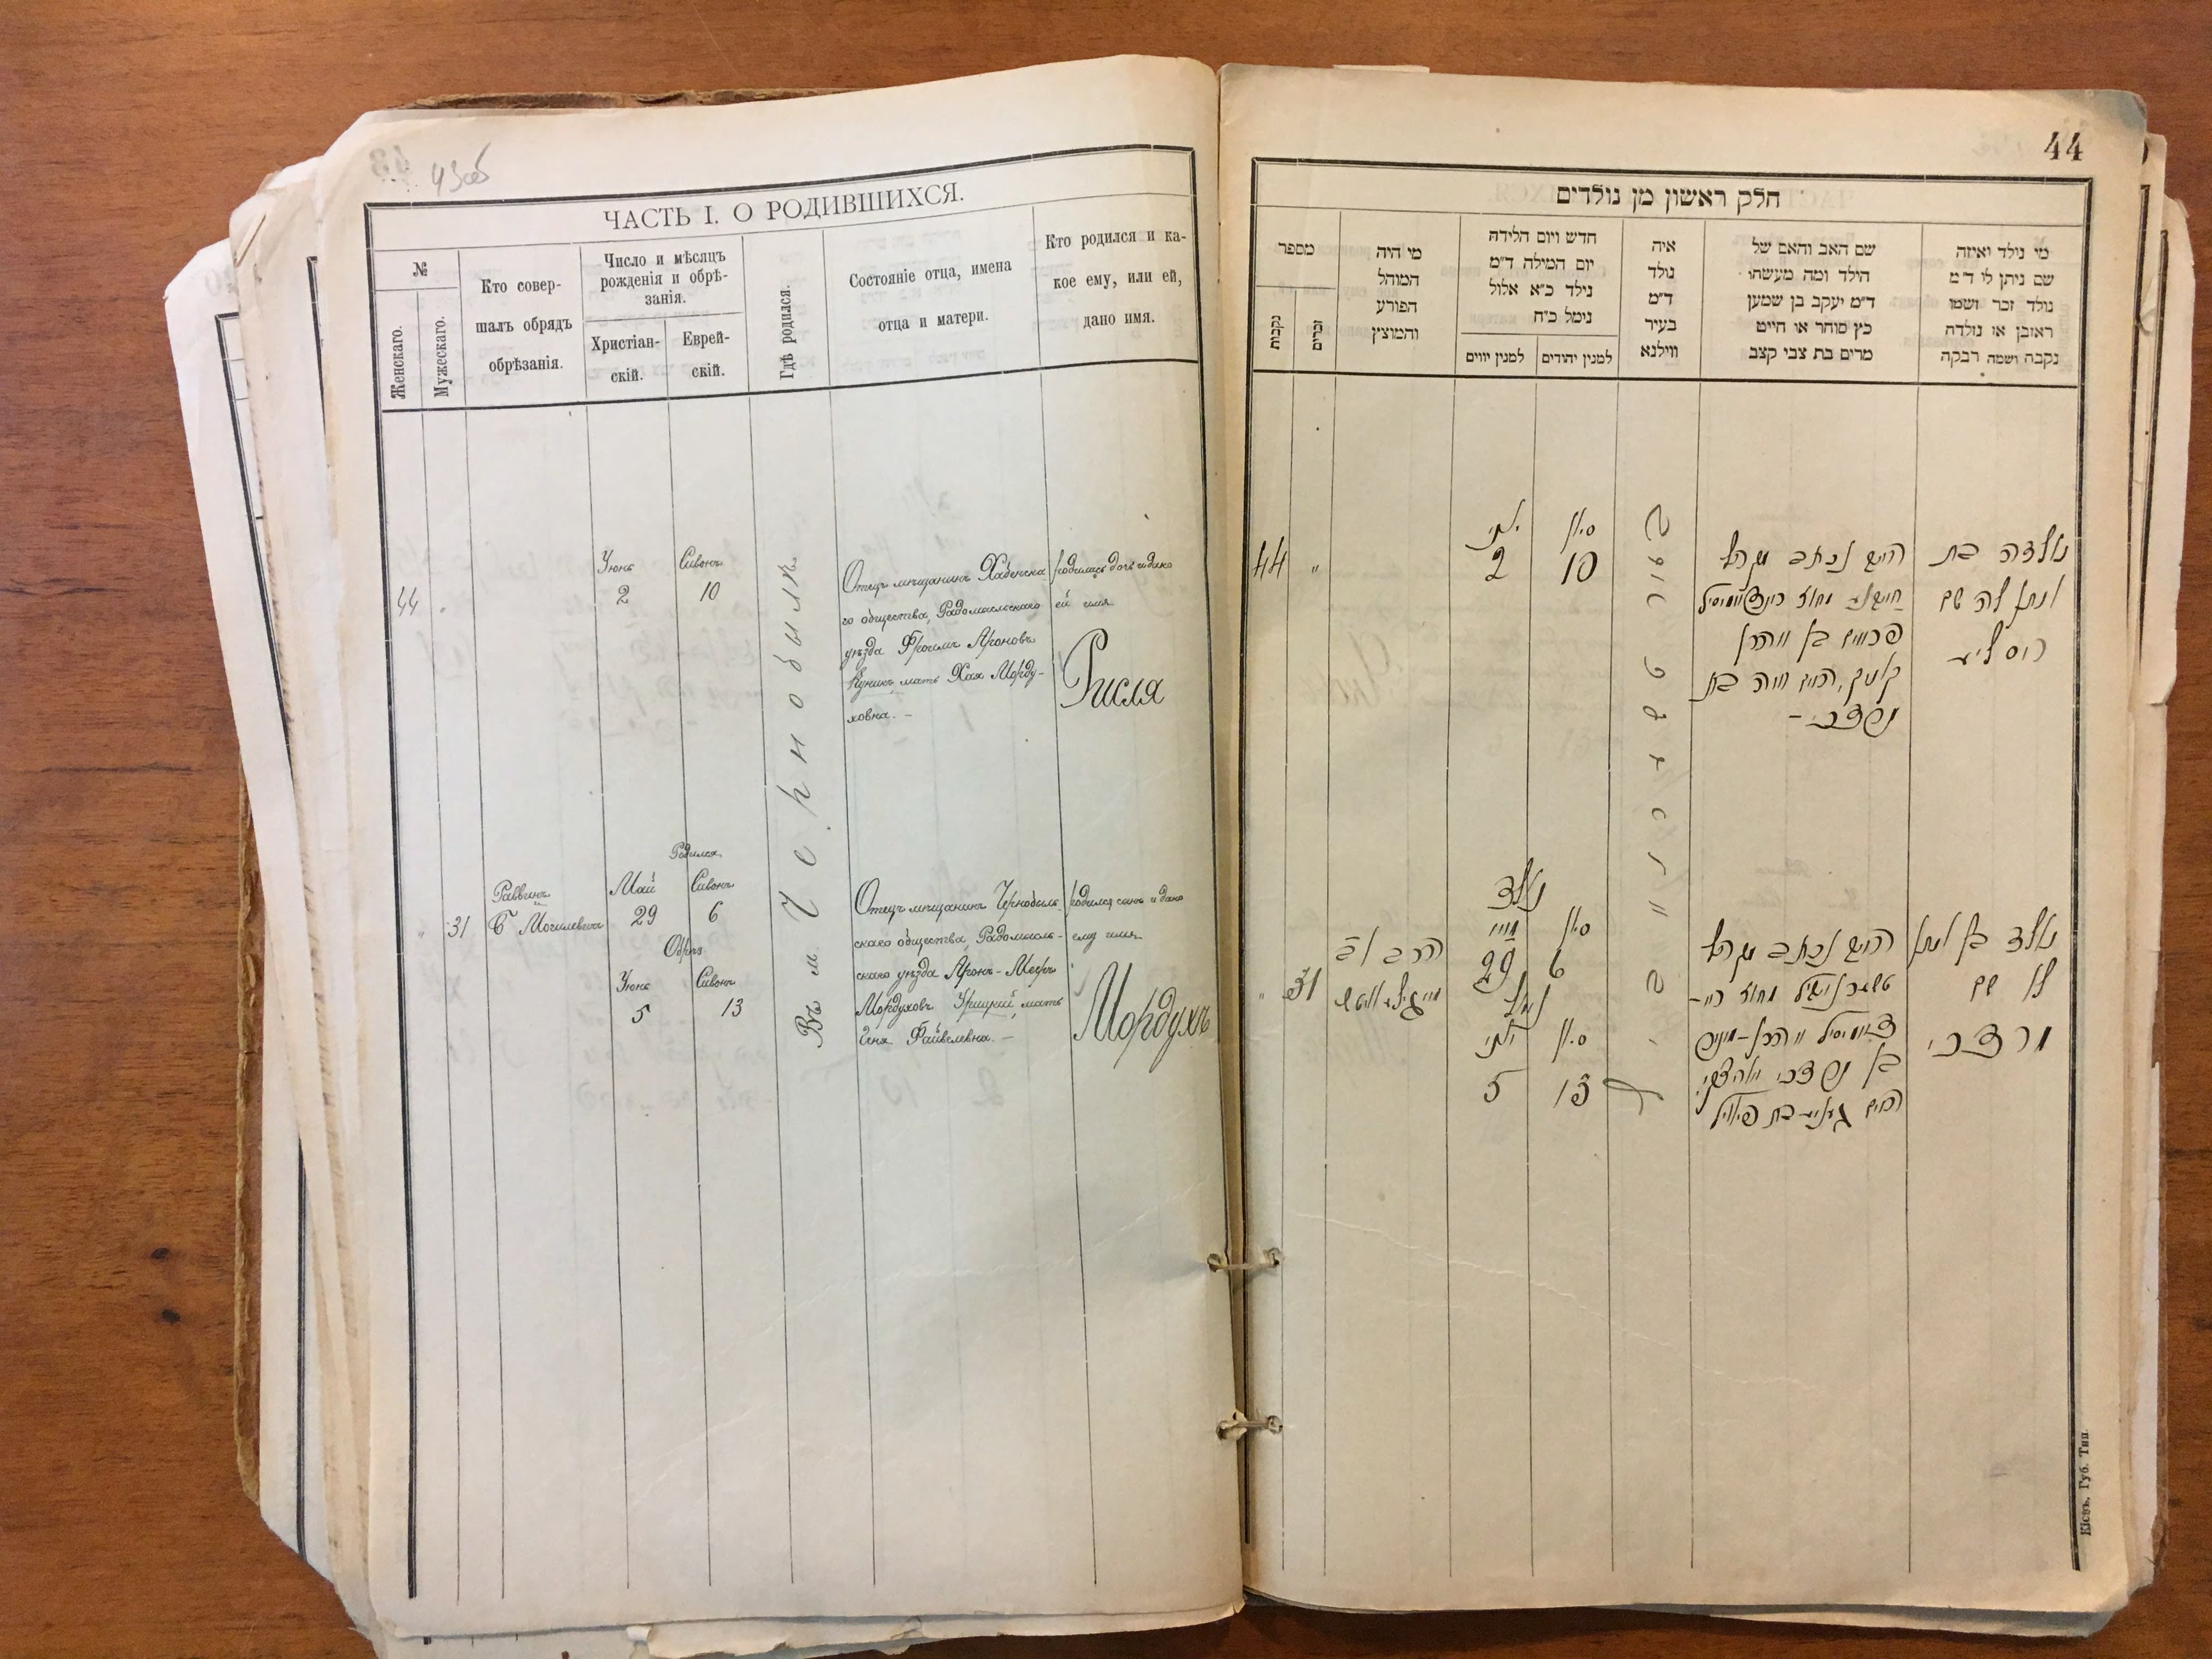 43об
ЧАСТЬ I. О РОДИВШИХСЯ.
№
Женскаго.
Мужескаго.
Кто совер-
шалъ обрядъ
обрѣзанія.
Число и мѣсяцъ
рожденія и обрѣ-
занія.
Христіан-
скій.
Еврей-
скій.
Гдѣ родился.
Состояніе отца, имена
отца и матери.
Кто родился и ка-
кое ему, или ей,
дано имя.
44
Іюнь
2
Сивонъ
10
Отецъ мѣщанинъ Хабенска
го общества, Радомысльскаго
уѣзда Фроимъ Ароновъ
мать Хая Морду-
ховна. —
родилась дочь и дано
ей имя
Рисля
Въ м Чернобылѣ
31
Раввинъ
Б Могилевичъ
Родился
Май
29
Сивонъ
6
Обрѣз
Іюнь
5
Сивонъ
13
Отецъ мѣщанинъ Чернобыль
скаго общества, Радомысль-
скаго уѣзда Аронъ-Мееръ
Мордуховъ Урицкий, мать
Геня Файвелевна. —
родился сынъ и дано
ему имя
Мордухъ
44
חלק ראשון מן נולדים
מי נולד ואיזה
שם ניתן לו ד״מ
נולד זכר ושמו
ראובן או נולדה
נקבה ושמה רבקה
שם האב והאם של
הילד ומה מעשהו
ד״מ יעקב בן שמעון
כץ סוחר או חייט
מרים בת צבי קצב
איה
נולד
ד״מ
בעיר
ווילנא
חדש ויום הלידה
יום המילה ד״מ
נילד כ״א אלול
נימל כ״ח
למנין יהודים
למנין יווים
מי היה
המוהל
הפורע
והמוצץ
מספר
זכרים
נקבות
נולדה בת
ונתן לה שם
ריסליא
האיש נכתב בקהל
בן אהרן
האם חיה בת
מרדכי –
סיון
10
יוני
2
44
נולד בן ונתן
לו שם
מרדכי
האיש נכתב בקהל
בן מרדכי
נולד
סיון
6
מאי
29
נימול
סיון
13
יוני
5
הרב
31
Кіевъ. Губ. Тип.